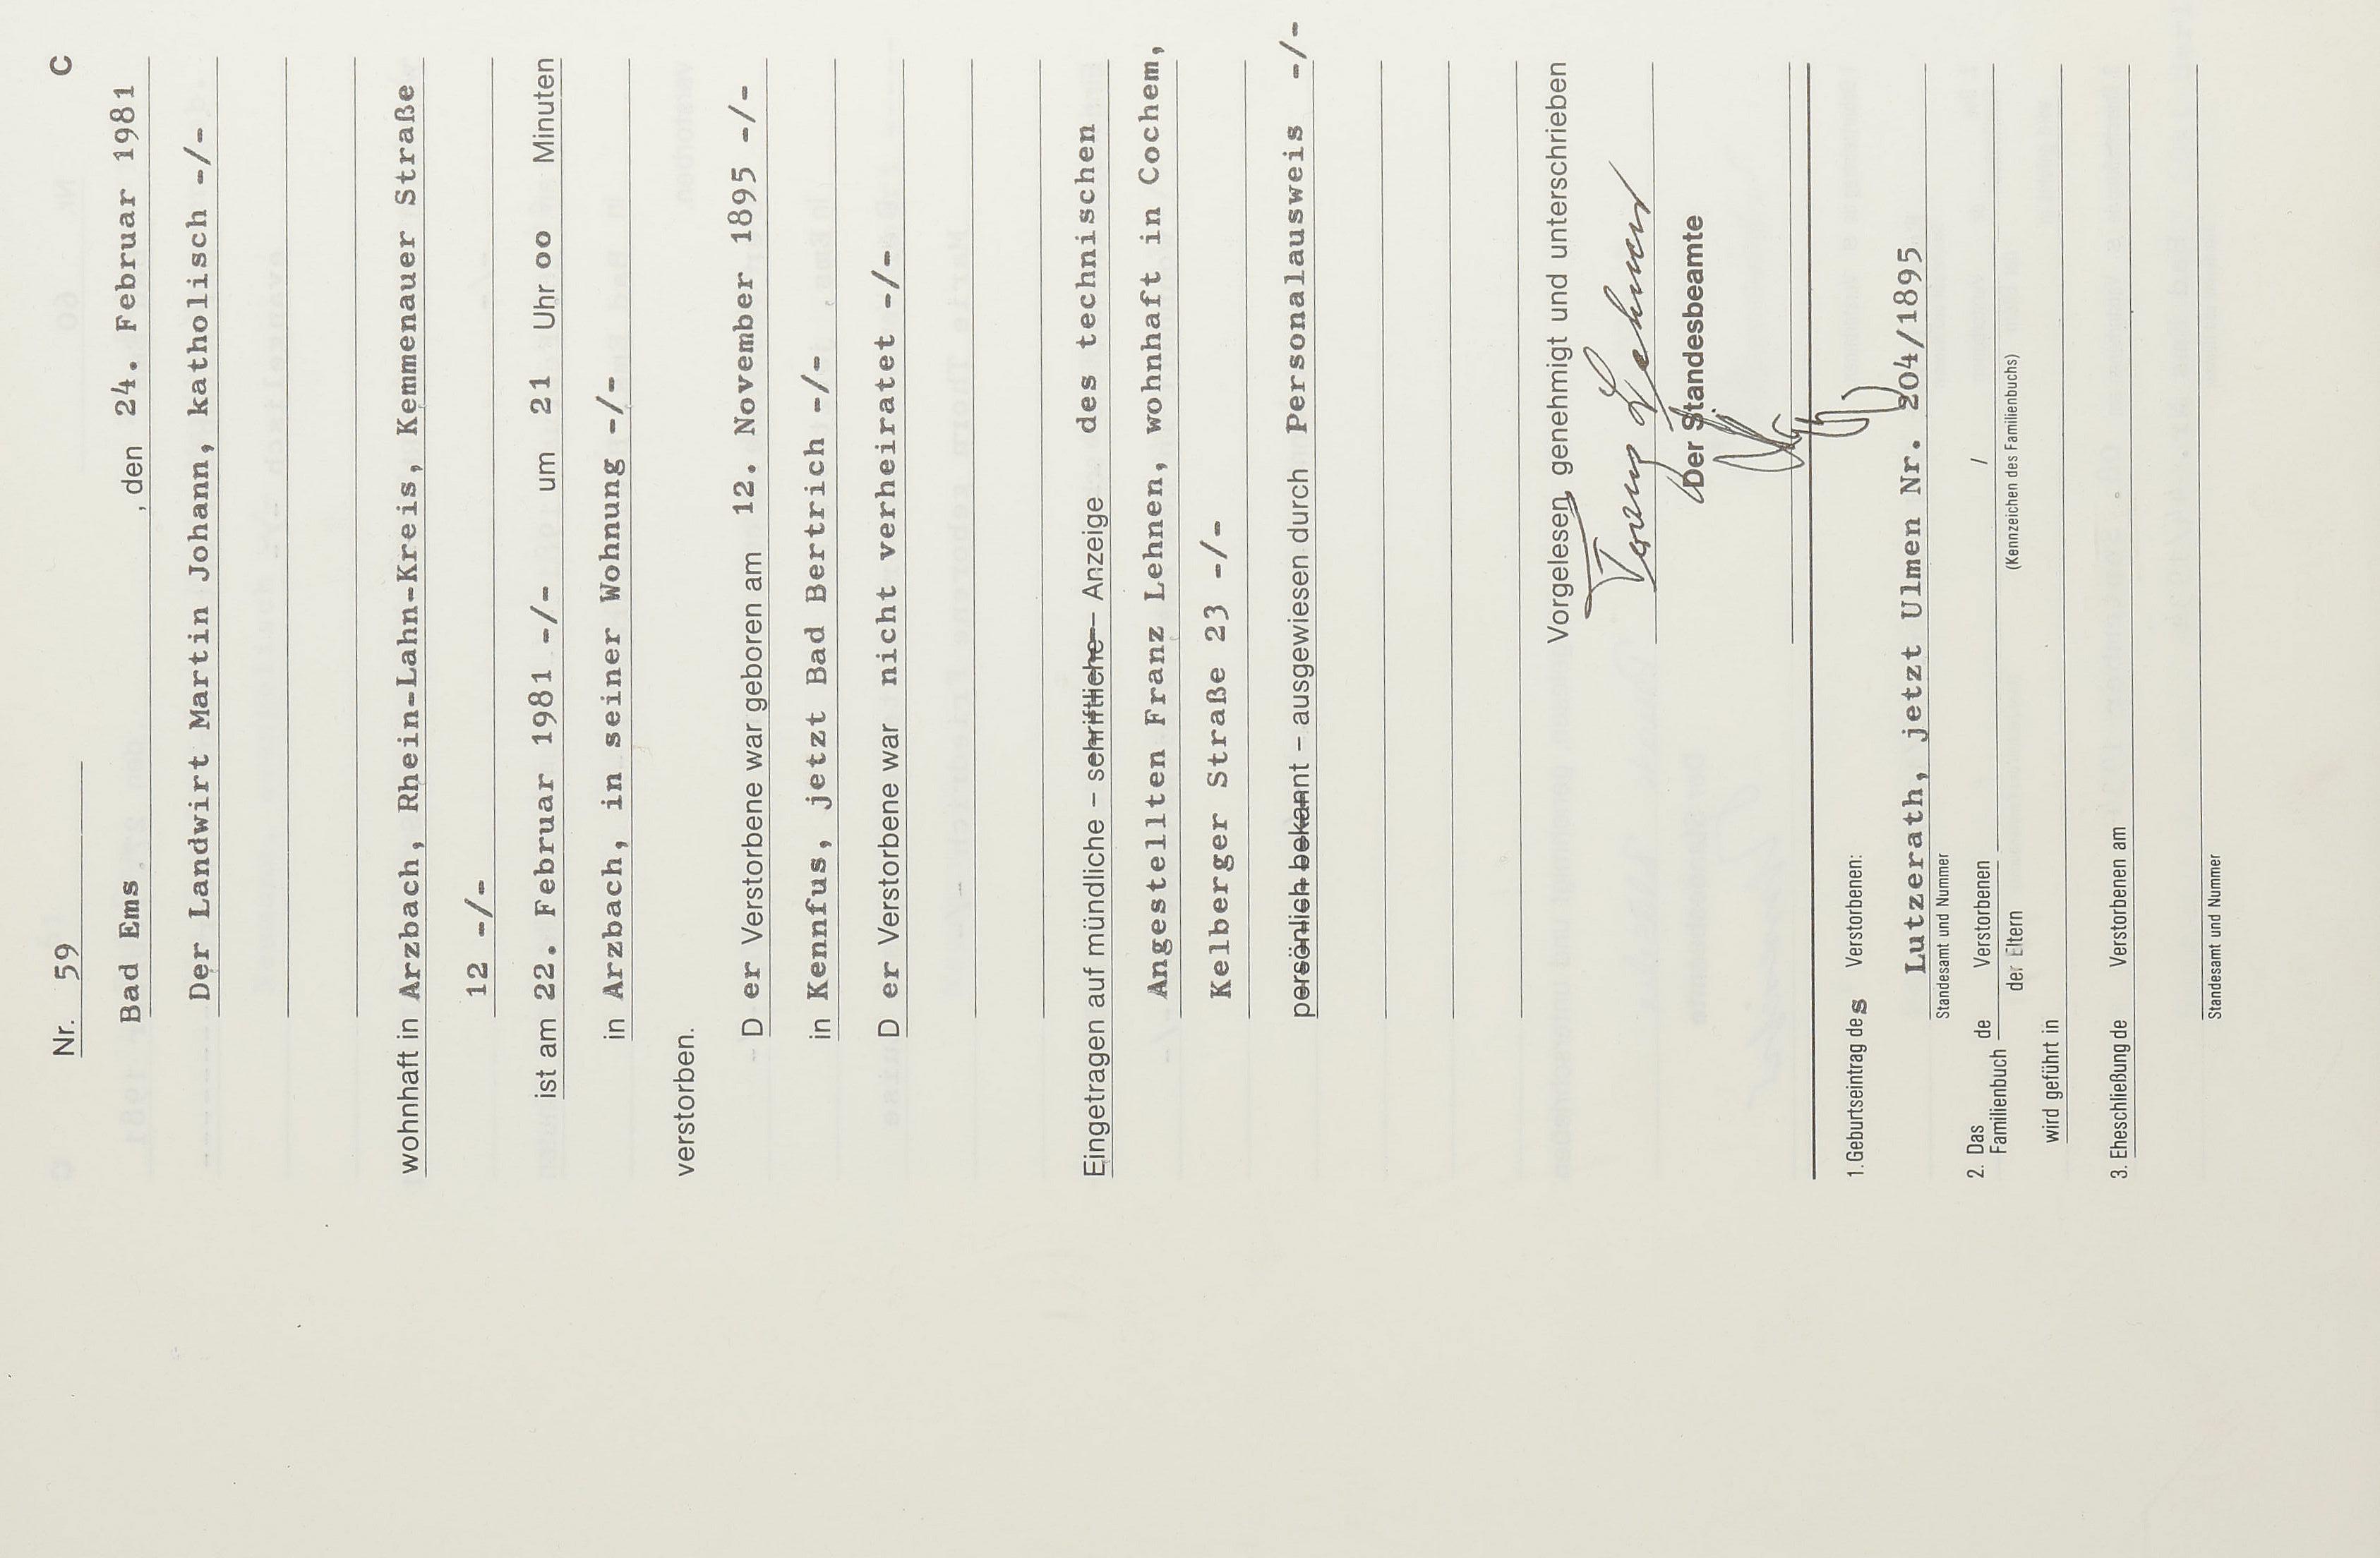 Nr. 59 C
Bad Ems , den 24. Februar 1981
Der Landwirt Martin Johann, katholisch -/-
wohnhaft in Arzbach, Rhein-Lahn-Kreis, Kemmenauer Straße
12 -/-
ist am 22. Februar 1981 -/- um 21 Uhr oo Minuten
in Arzbach, in seiner Wohnung -/-
verstorben.
D er Verstorbene war geboren am 12. November 1895 -/-
in Kennfus, jetzt Bad Bertrich -/-
D er Verstorbene war nicht verheiratet -/-
Eingetragen auf mündliche – schriftliche – Anzeige des technischen
Angestellten Franz Lehnen, wohnhaft in Cochem,
Kelberger Straße 23 -/-
persönlich bekannt – ausgewiesen durch Personalausweis -/-
Vorgelesen, genehmigt und unterschrieben
Franz Lehnen
Der Standesbeamte
1. Geburtseintrag des Verstorbenen:
Lutzerath, jetzt Ulmen Nr. 204/1895
Standesamt und Nummer
2. Das Familienbuch de Verstorbenen /
der Eltern (Kennzeichen des Familienbuchs)
wird geführt in
3. Eheschließung de Verstorbenen am
Standesamt und Nummer